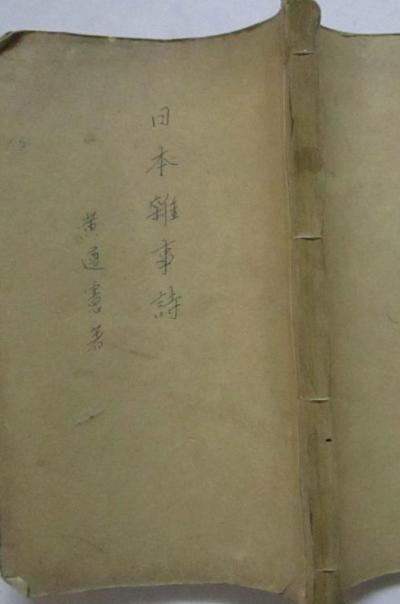 日本雜事詩
黃遵憲著